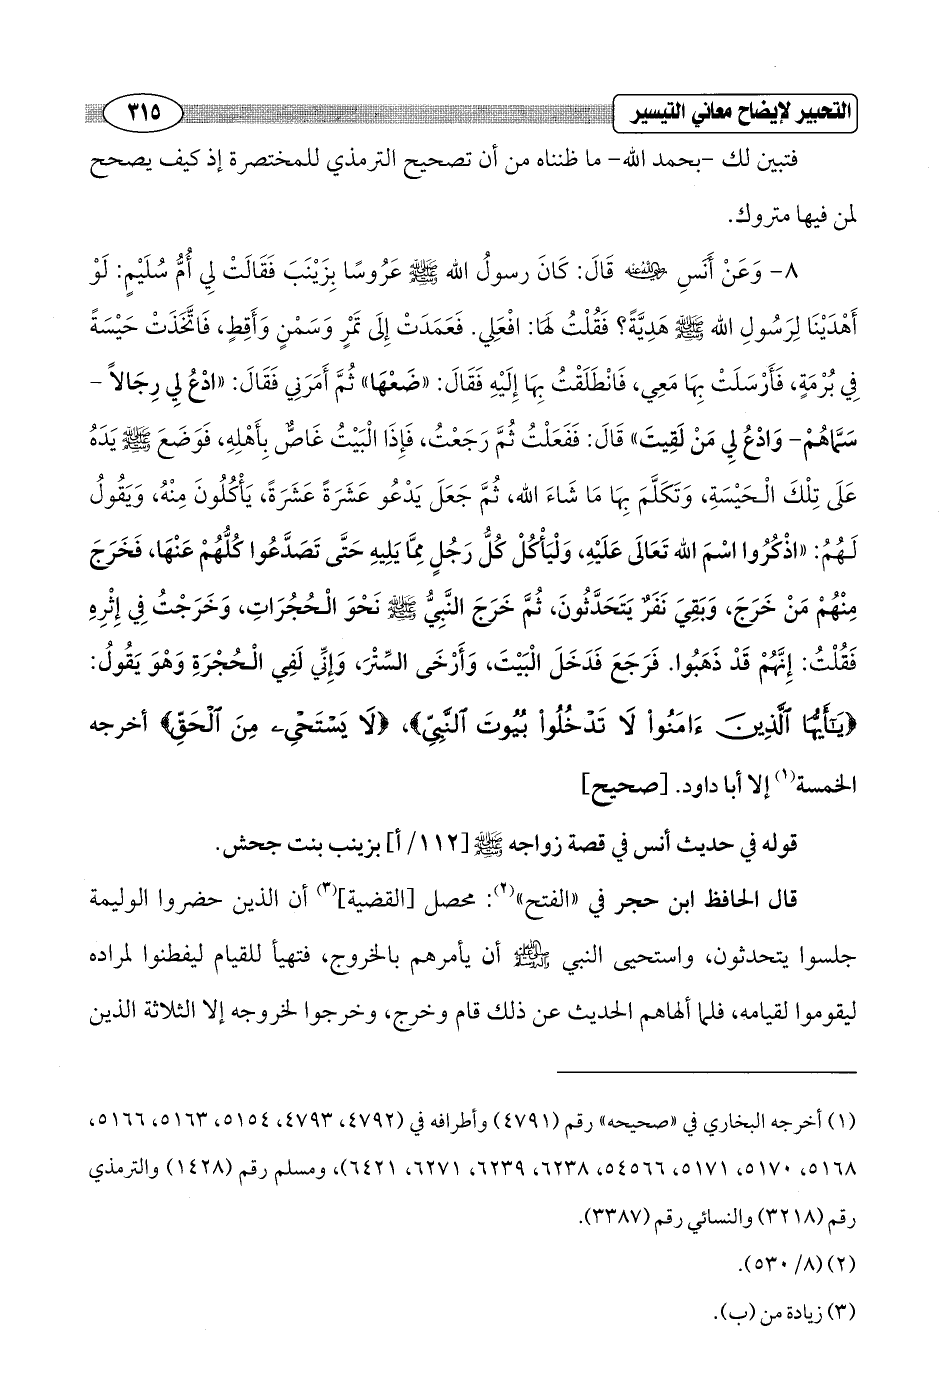 التحبير لإيضاح معاني التيسير ٣١٥
فتبين لك -بحمد الله- ما ظنناه من أن تصحيح الترمذي للمختصرة إذ كيف يصحح
لمن فيها متروك.
٨- وَعَنْ أَنَسٍ رضي الله عنه قَالَ: كَانَ رسولُ الله ﷺ عَرُوسًا بِزَيْنَبَ فَقَالَتْ لِي أُمُّ سُلَيْمٍ: لَوْ
أَهْدَيْنَا لِرَسُولِ الله ﷺ هَدِيَّةً؟ فَقُلْتُ لَهَا: افْعَلِي. فَعَمَدَتْ إِلَى تَمْرٍ وَسَمْنٍ وَأَقِطٍ، فَاتَّخَذَتْ حَيْسَةً
فِي بُرْمَةٍ، فَأَرْسَلَتْ بِهَا مَعِي، فَانْطَلَقْتُ بِهَا إِلَيْهِ فَقَالَ: «ضَعْهَا» ثُمَّ أَمَرَنِي فَقَالَ: «ادْعُ لِي رِجَالاً -
سَمَّاهُمْ- وَادْعُ لِي مَنْ لَقِيتَ» قَالَ: فَفَعَلْتُ ثُمَّ رَجَعْتُ، فَإِذَا الْبَيْتُ غَاصٌّ بِأَهْلِهِ، فَوَضَعَ ﷺ يَدَهُ
عَلَى تِلْكَ الْحَيْسَةِ، وَتَكَلَّمَ بِهَا مَا شَاءَ الله، ثُمَّ جَعَلَ يَدْعُو عَشَرَةً عَشَرَةً، يَأْكُلُونَ مِنْهُ، وَيَقُولُ
لَهُمُ: «اذْكُرُوا اسْمَ الله تَعَالَى عَلَيْهِ، وَلْيَأْكُلْ كُلُّ رَجُلٍ مِمَّا يَلِيهِ حَتَّى تَصَدَّعُوا كُلُّهُمْ عَنْهَا، فَخَرَجَ
مِنْهُمْ مَنْ خَرَجَ، وَبَقِيَ نَفَرٌ يَتَحَدَّثُونَ، ثُمَّ خَرَجَ النَّبِيُّ ﷺ نَحْوَ الْحُجُرَاتِ، وَخَرَجْتُ فِي إِثْرِهِ
فَقُلْتُ: إِنَّهُمْ قَدْ ذَهَبُوا. فَرَجَعَ فَدَخَلَ الْبَيْتَ، وَأَرْخَى السِّتْرَ، وَإِنِّي لَفِي الْحُجْرَةِ وَهْوَ يَقُولُ:
﴿يَٰٓأَيُّهَا ٱلَّذِينَ ءَامَنُوا۟ لَا تَدْخُلُوا۟ بُيُوتَ ٱلنَّبِيِّ﴾، ﴿لَا يَسْتَحْىِۦ مِنَ ٱلْحَقِّ﴾ أخرجه
الخمسة(١) إلا أبا داود. [صحيح]
قوله في حديث أنس في قصة زواجه ﷺ [١١٢/ أ] بزينب بنت جحش.
قال الحافظ ابن حجر في «الفتح»(٢): محصل [القضية](٣) أن الذين حضروا الوليمة
جلسوا يتحدثون، واستحيى النبي ﷺ أن يأمرهم بالخروج، فتهيأ للقيام ليفطنوا لمراده
ليقوموا لقيامه، فلما ألهاهم الحديث عن ذلك قام وخرج، وخرجوا لخروجه إلا الثلاثة الذين
(١) أخرجه البخاري في «صحيحه» رقم (٤٧٩١) وأطرافه في (٤٧٩٢، ٤٧٩٣، ٥١٥٤، ٥١٦٣، ٥١٦٦،
٥١٦٨، ٥١٧٠، ٥١٧١، ٥٤٥٦٦، ٦٢٣٨، ٦٢٣٩، ٦٢٧١، ٦٤٢١)، ومسلم رقم (١٤٢٨) والترمذي
رقم (٣٢١٨) والنسائي رقم (٣٣٨٧).
(٢) (٨/ ٥٣٠).
(٣) زيادة من (ب).